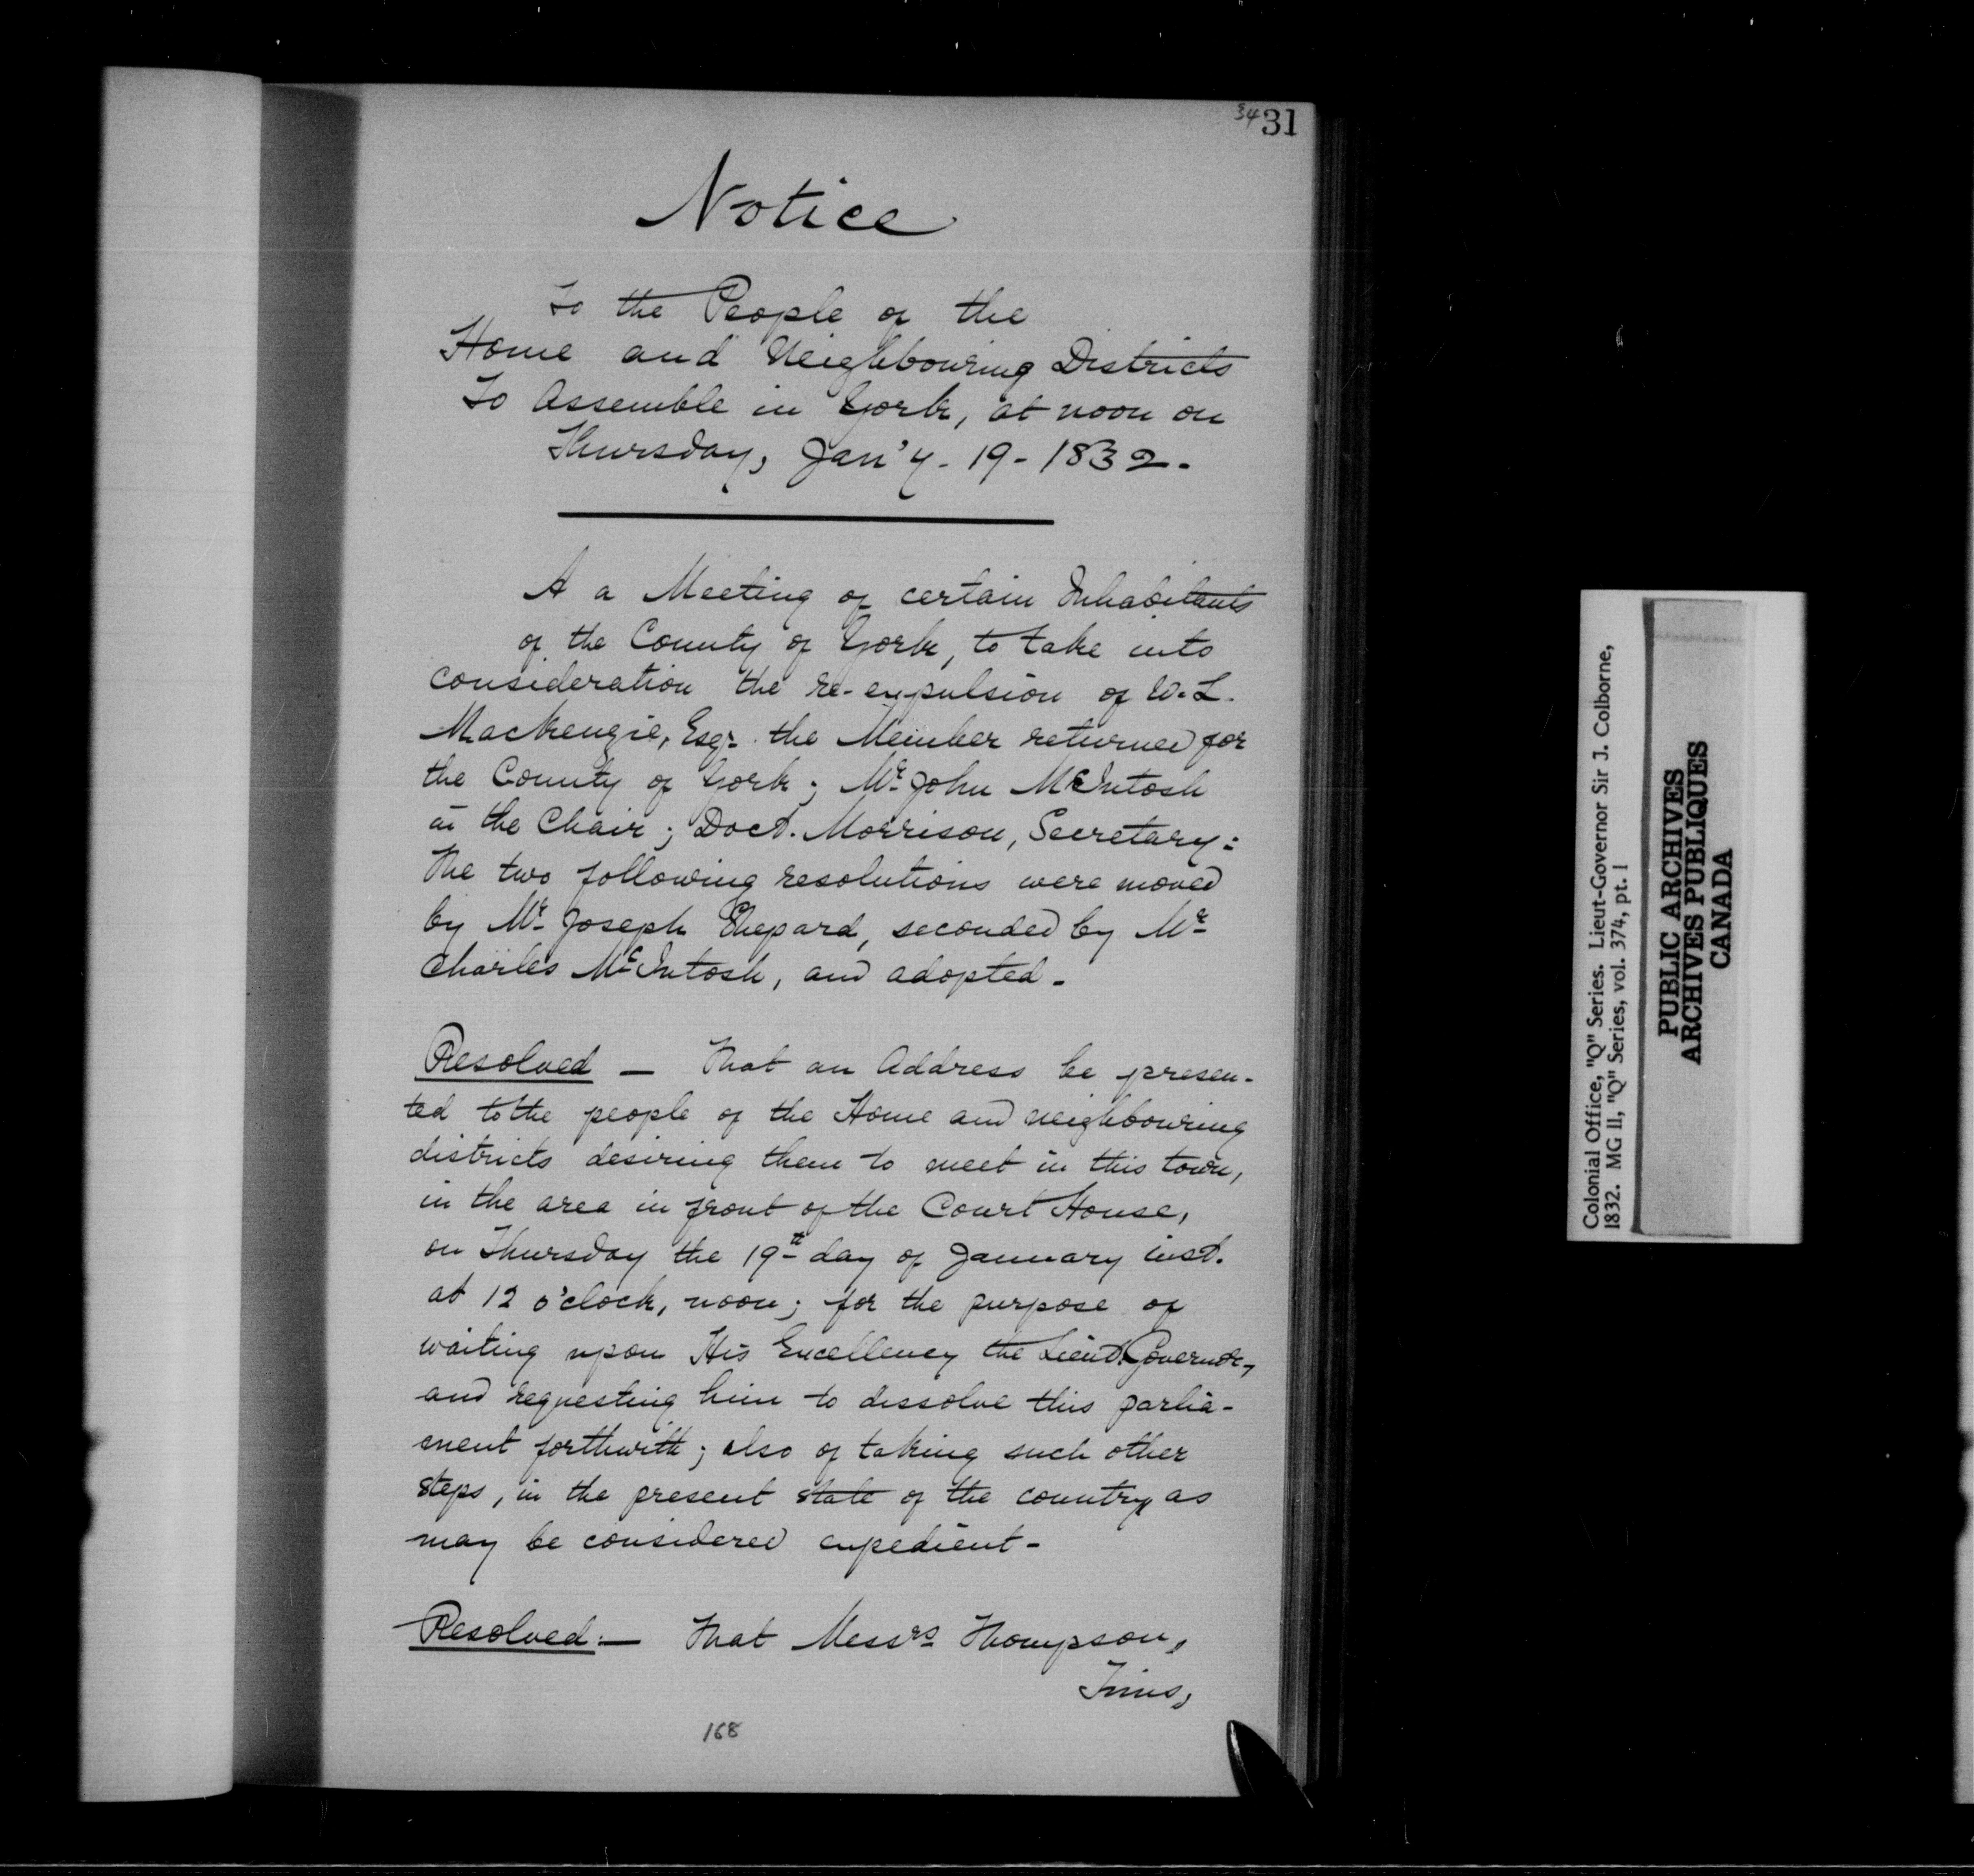 34 31
Notice
To the People of the
Home and Neighbouring Districts
To Assemble in York, at noon on
Thursday, Jan'y. 19 - 1832.
A a Meeting of certain Inhabitants
of the County of York, to take into
consideration the re-expulsion of W. L.
Mackenzie, Esqr. the Member returned for
the County of York; Mr. John McIntosh
in the Chair; Doct. Morrison, Secretary:
The two following resolutions were moved
by Mr. Joseph Shepard, seconded by Mr.
Charles McIntosh, and adopted.
Resolved — That an Address be presen-
ted to the people of the Home and neighbouring
districts desiring them to meet in this town,
in the area in front of the Court House,
on Thursday the 19th day of January inst.
at 12 o'clock, noon; for the purpose of
waiting upon His Excellency the Lieut. Governor,
and requesting him to dissolve this parlia-
ment forthwith; also of taking such other
steps, in the present state of the country as
may be considered expedient -
Resolved: — That Messrs Thompson,
Tims,
168
Colonial Office, "Q" Series. Lieut-Governor Sir J. Colborne,
1832. MG 11, "Q" Series, vol. 374, pt. 1
PUBLIC ARCHIVES
ARCHIVES PUBLIQUES
CANADA